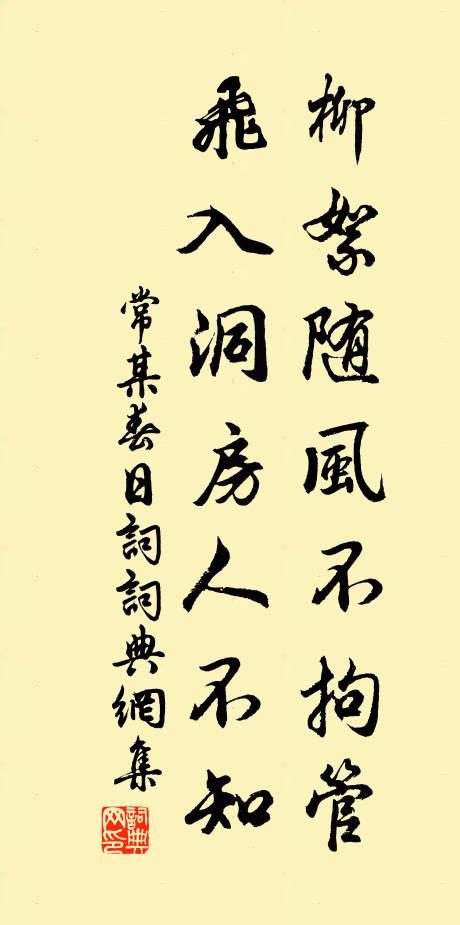 柳絮随風不拘管
飛入洞房人不知
常某春日詞詞典網集
詞典网印